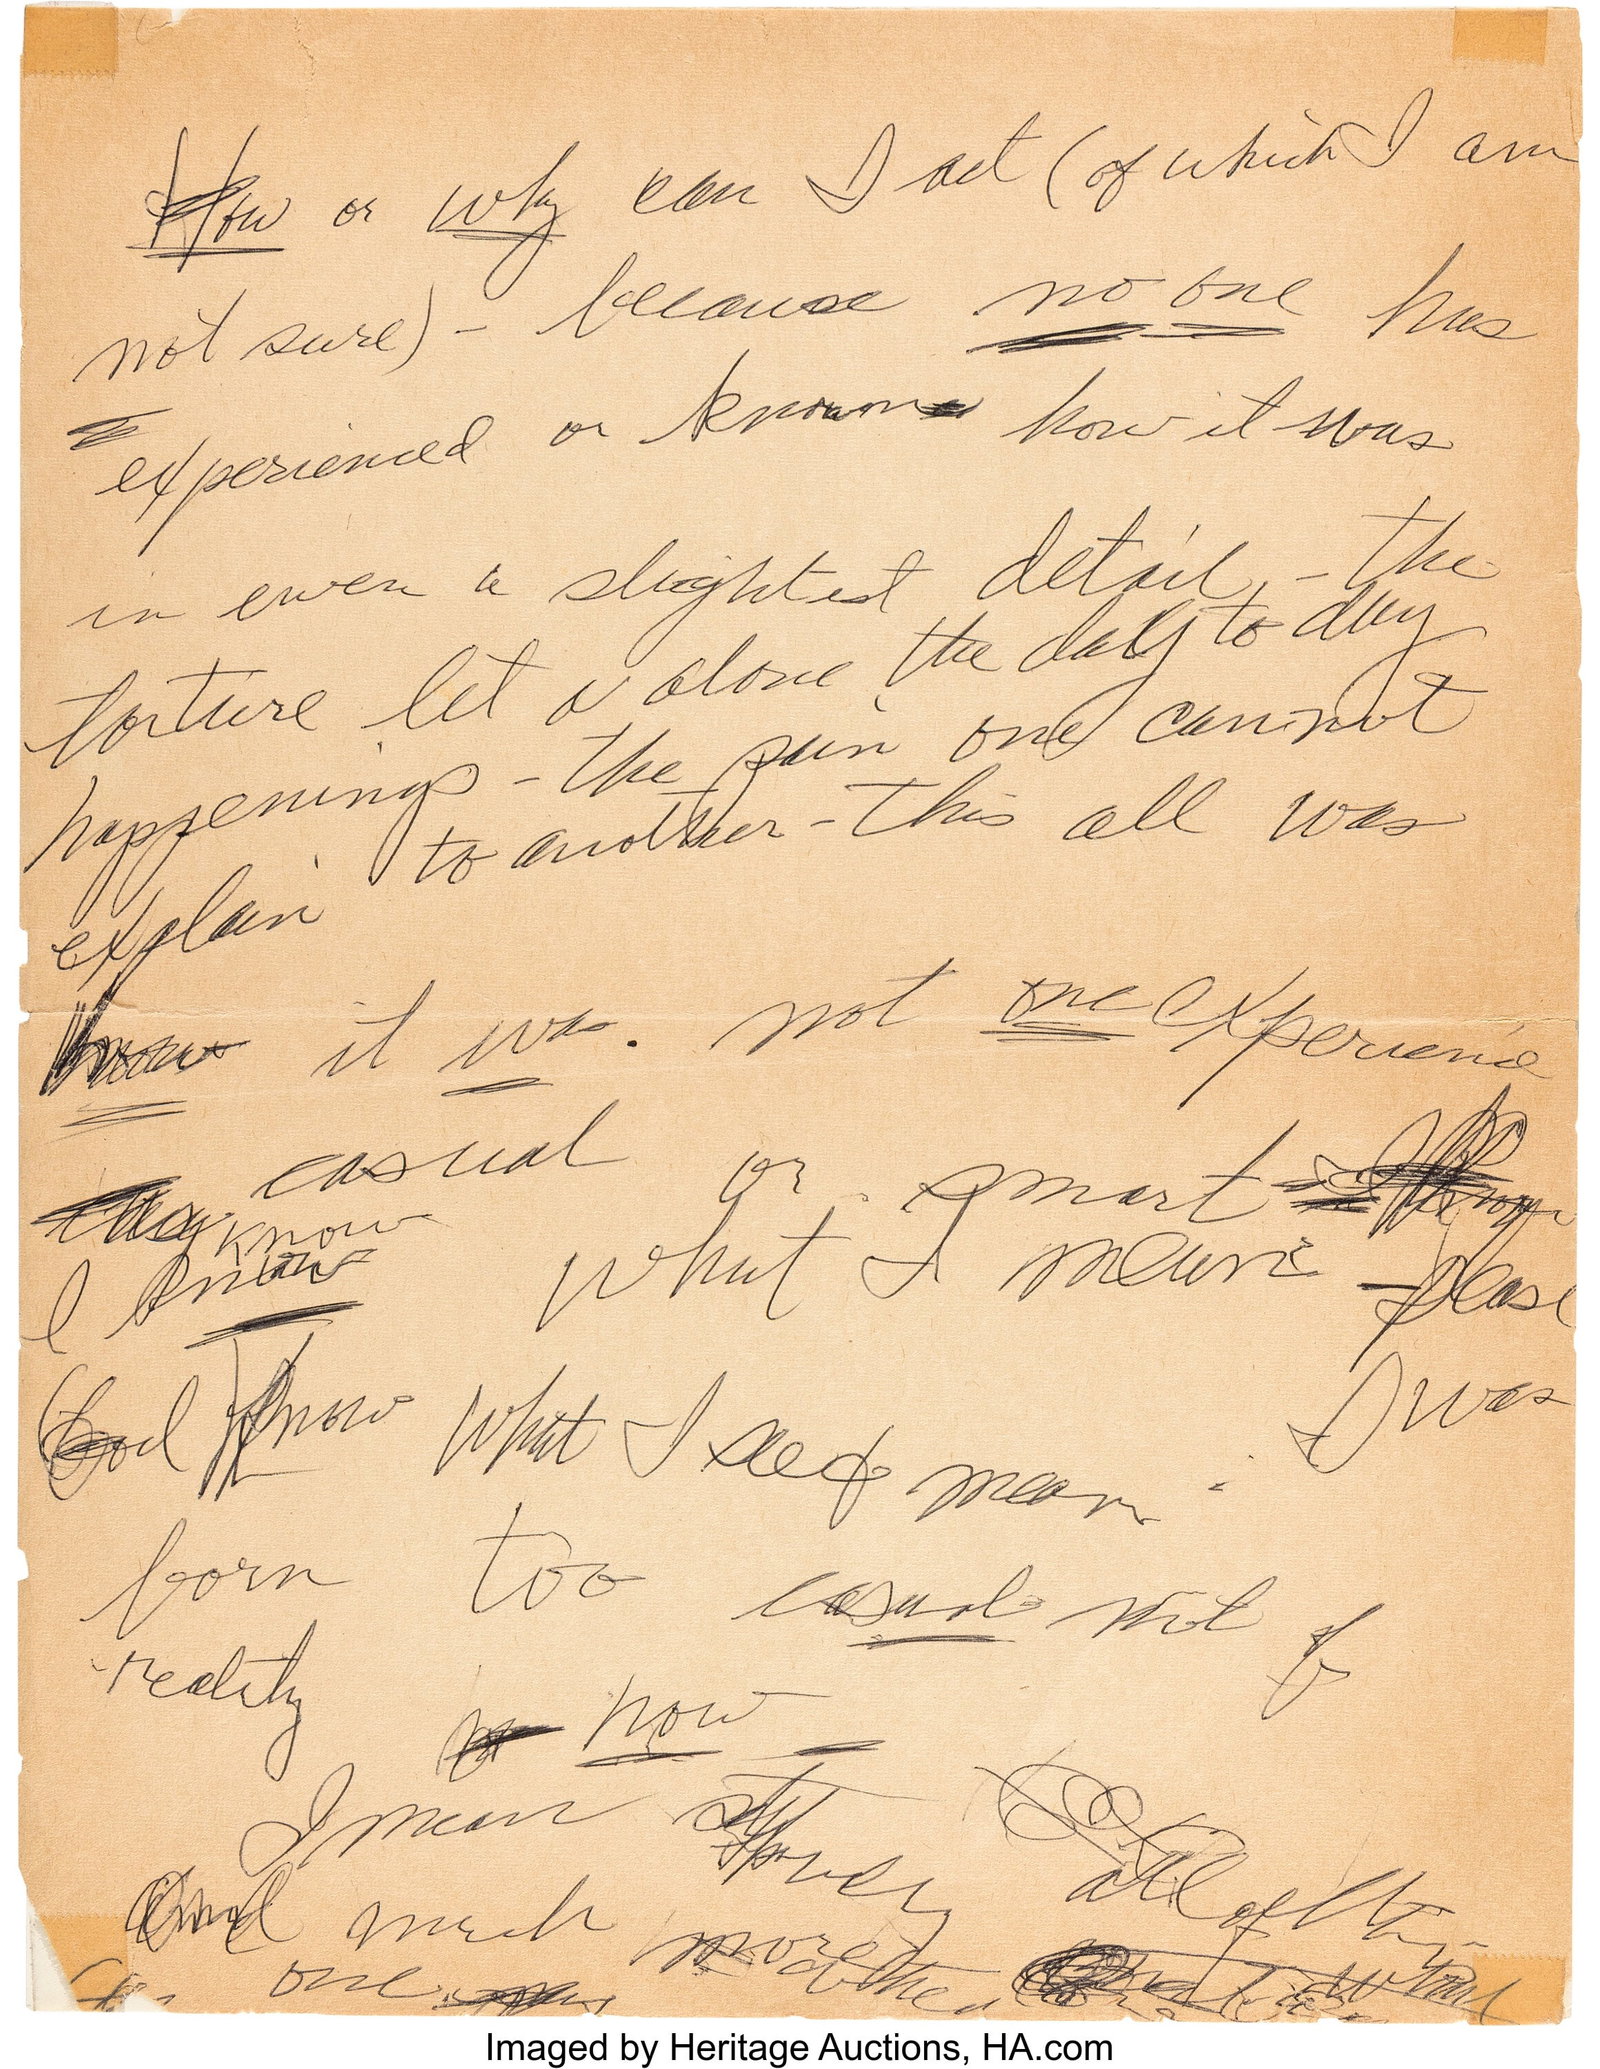 How or why can I act (of which I am
not sure) - because no one has
experienced or known how it was
in even a slightest detail, - the
torture let a alone the daly to day
happenings - the pain one cannot
explain to another - this all was
it was. not one experience
casual or smart
I know know what I mean - please
God know what I mean. I was
born too casual not of
reality now -
I mean all of
and much more
one
Imaged by Heritage Auctions, HA.com